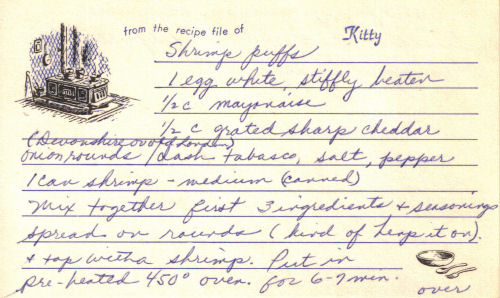 from the recipe file of Kitty
Shrimp puffs
1 egg white stiffly beaten
1/2 c mayonaise
1/2 c grated sharp cheddar
(Devonshire of London)
onion rounds / dash tabasco, salt, pepper
1 can shrimp - medium (canned)
Mix together first 3 ingredients + seasonings
spread on rounds (kind of heap it on).
+ top with a shrimp. Put in
pre-heated 450° oven. for 6-7 min.
over